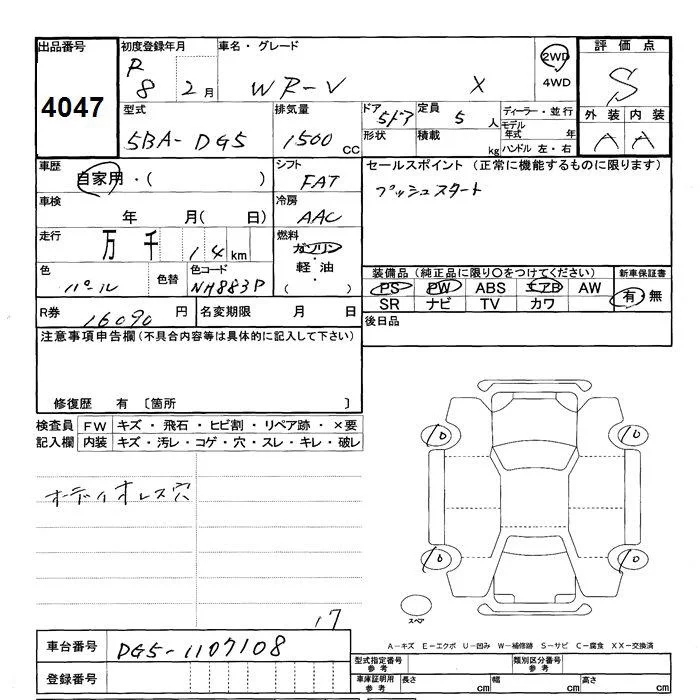 出品番号
4047
初度登録年月
R 8 2月
車名・グレード
WR-V X
2WD
4WD
評価点
S
型式
5BA-DG5
排気量
1500 cc
ドア
5ドア
形状
定員
5 人
積載 kg
ディーラー・並行
モデル年式 年
ハンドル 左・右
外装 内装
A A
車歴
自家用・( )
シフト
FAT
セールスポイント (正常に機能するものに限ります)
プッシュスタート
車検
年 月( 日)
冷房
AAC
走行
万 千 14 km
燃料
ガソリン
・
軽油
( )
色
パール
色替
色コード
NH883P
装備品 (純正品に限り○をつけてください)
PS PW ABS エアB AW
SR ナビ TV カワ
新車保証書
有・無
R券
16090 円
名変期限 月 日
後日品
注意事項申告欄(不具合内容等は具体的に記入して下さい)
修復歴 有 〔箇所 〕
検査員
記入欄
FW キズ・飛石・ヒビ割・リペア跡・×要
内装 キズ・汚レ・コゲ・穴・スレ・キレ・破レ
オーディオレス穴
17
スペア
A−キズ E−エクボ U−凹み W−補修跡 S−サビ C−腐食 XX−交換済
車台番号
DG5-1107108
登録番号
型式指定番号
参考
類別区分番号
参考
車庫証明用
参考
長さ cm
幅 cm
高さ cm